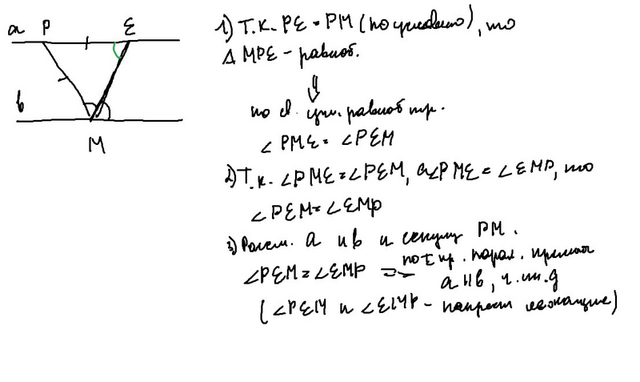 a P E
b
M
1) Т.к. PE = PM (по условию), то
△ MPE - равноб.
⇓
по св. угл. равноб. тр.
∠PME = ∠PEM
2) Т.к. ∠PME = ∠PEM, а ∠PME = ∠EMP, то
∠PEM = ∠EMP
3) Рассм. a и b и секущ. PM.
∠PEM = ∠EMP ⇒ по I пр. парал. прямых
a || b, ч.т.д
(∠PEM и ∠EMP - накрест лежащие)